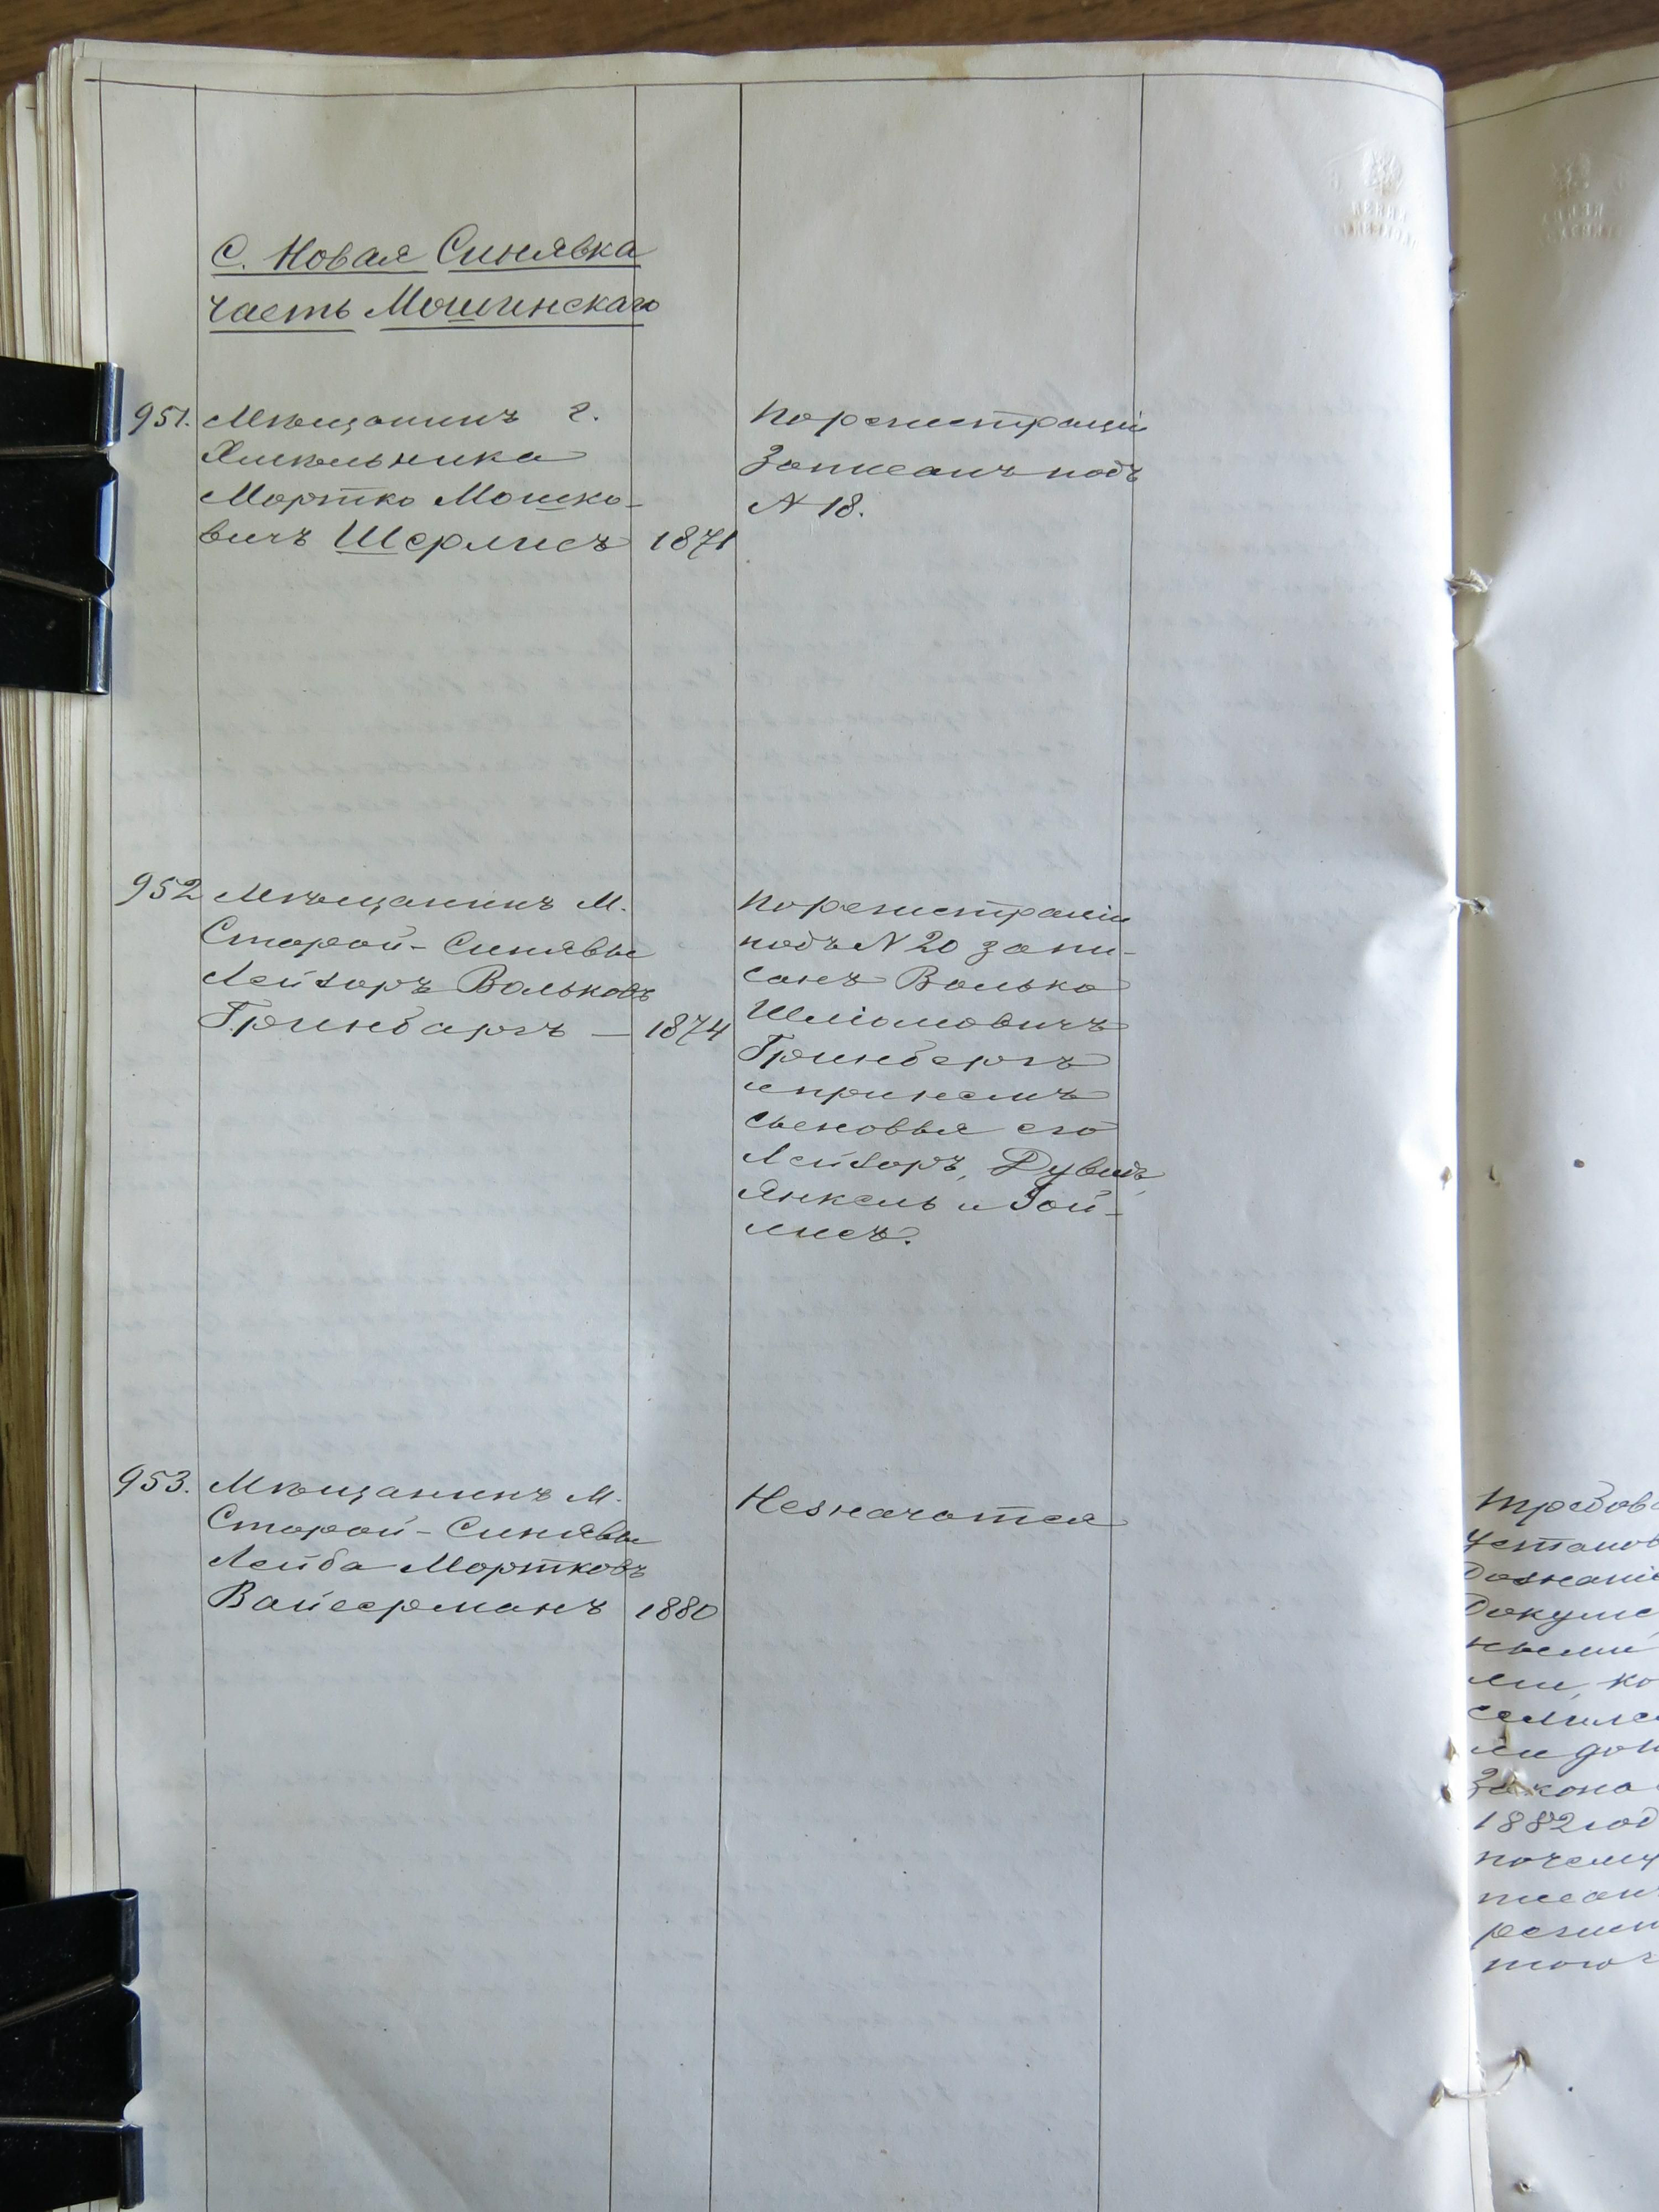 С. Новая Синявка
часть Мошинскаго
951. Мѣщанинъ г.
Хмельника
Мортко Мошко-
вичъ Шерлисъ 1871
По регистраціи
Записанъ подъ
N 18.
952 Мѣщанинъ м.
Старой-Синявы
Лейзоръ Вольковъ
Гринбаргъ — 1874
По регистраціи
подъ N 20 запи-
санъ Волько
Шліомовичъ
Гринбергъ
и при немъ
сыновья его
Лейзоръ, Дувидъ,
Янкель и Зой-
лисъ.
953. Мѣщанинъ м.
Старой-Синявы
Лейба Мортковъ
Вайсерманъ 1880
Не значатся
Дознані
Докуме
ными
ли, ко
Закона
1882 год
почему